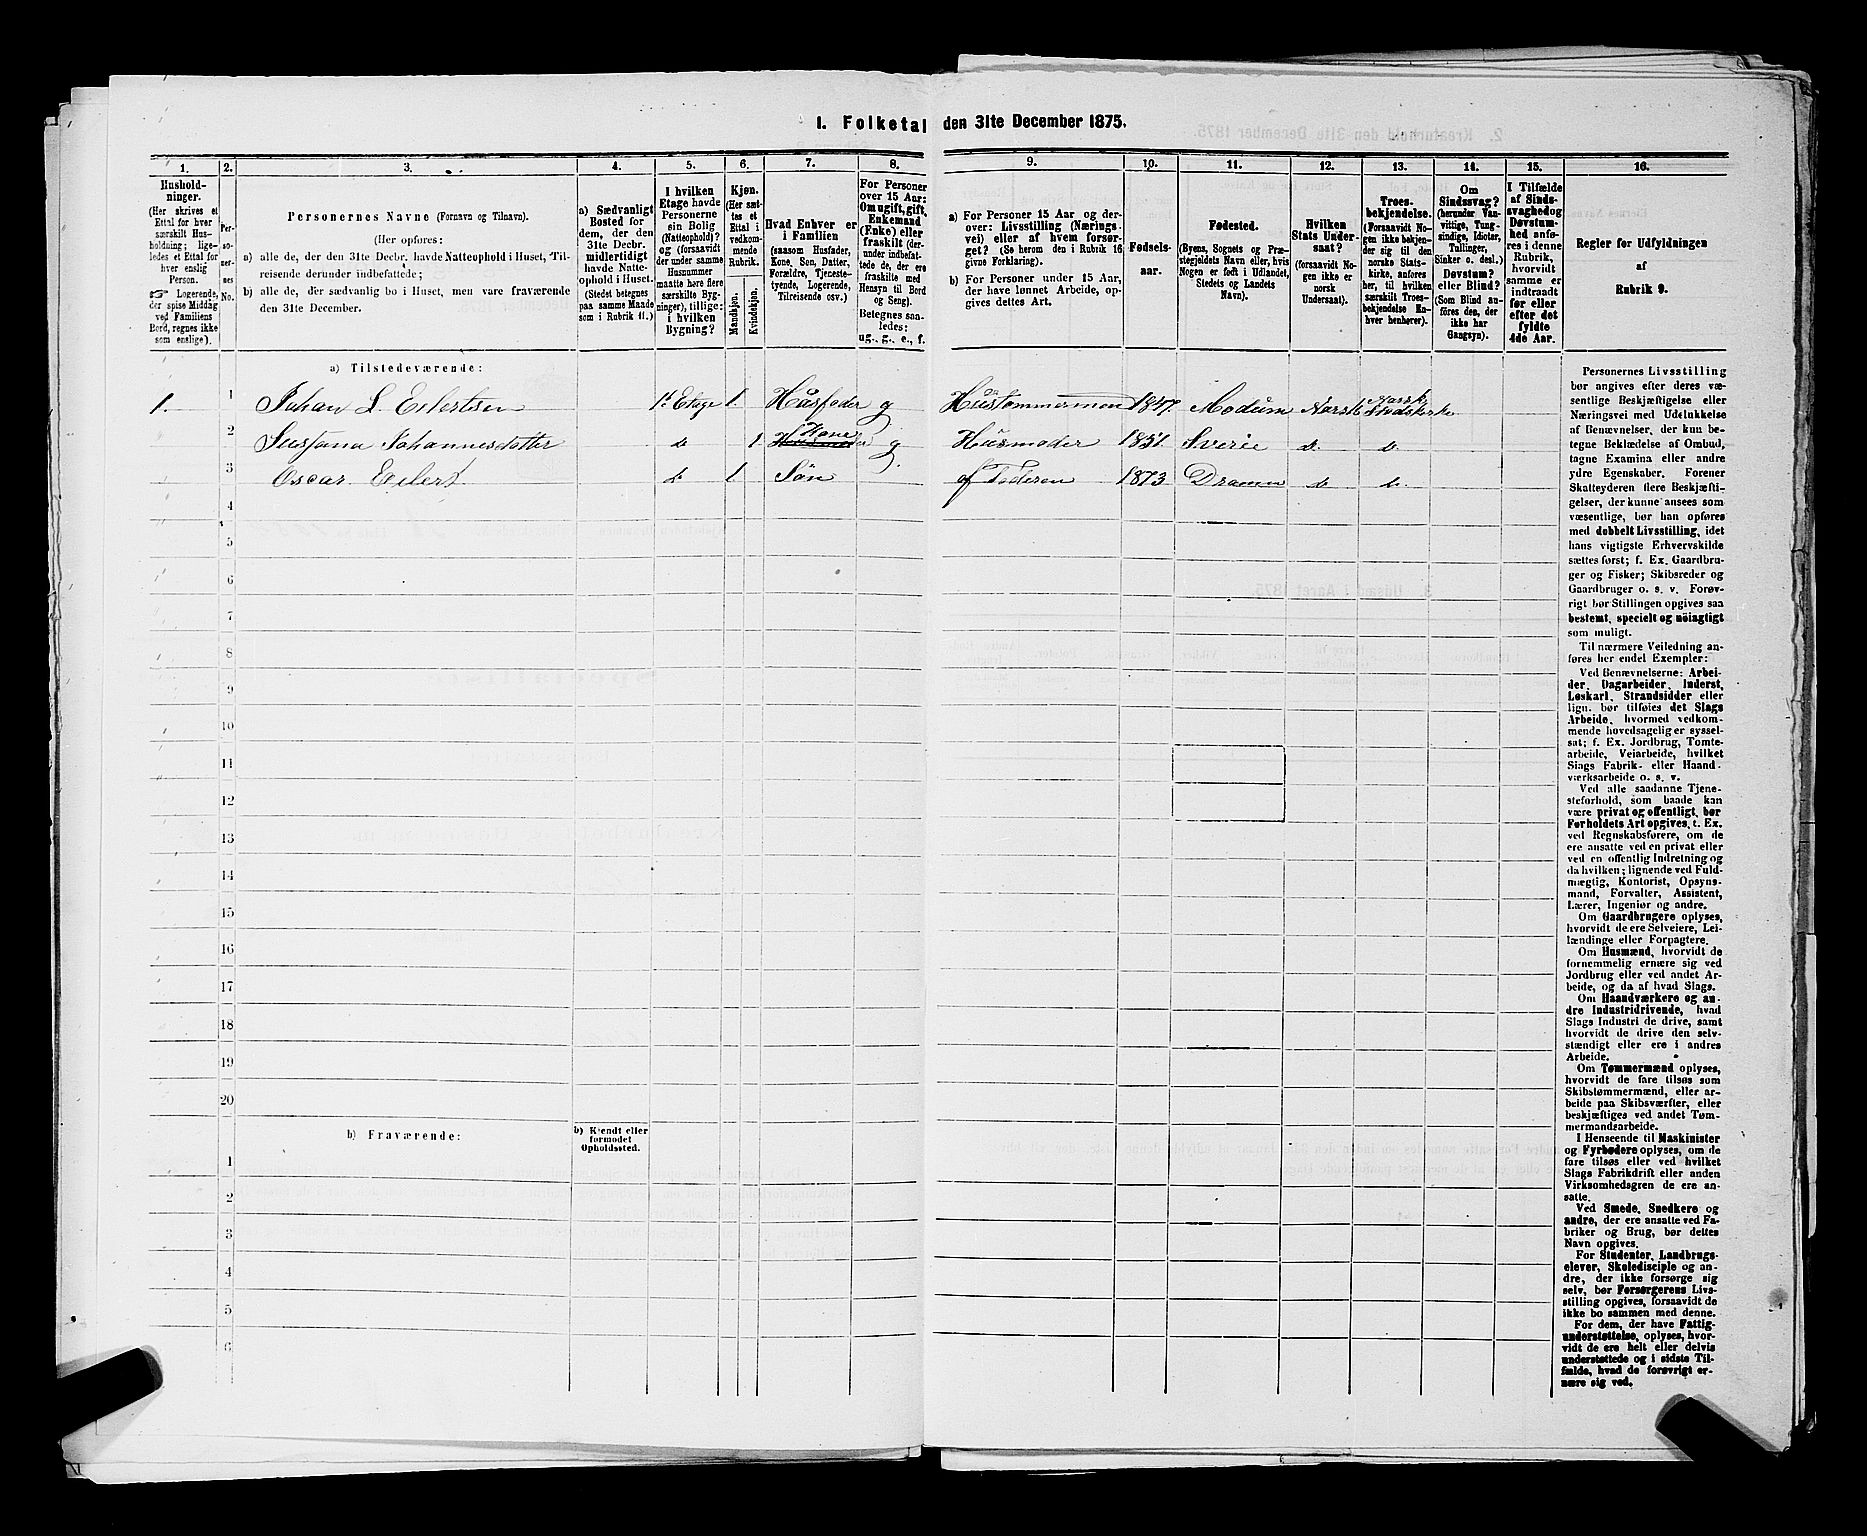 1. Folketal den 31te December 1875.
1. 2. 3. 4. 5. 6. 7. 8. 9. 10. 11. 12. 13. 14. 15. 16.
Hushold-
ninger.
(Her skrives et
Ettal for hver
særskilt Hus-
holdning; lige-
ledes et Ettal for
hver enslig
Person.
☞ Logerende,
der spise Middag
ved Familiens
Bord, regnes ikke
som enslige).
Per-
so-
ner-
nes
No.
Personernes Navne (Fornavn og Tilnavn).
(Her opføres:
a) alle de, der den 31te Decbr. havde Natteophold i Huset, Til-
reisende derunder indbefattede;
b) alle de, der sædvanlig bo i Huset, men vare fraværende
den 31te December.
a) Sædvanligt
Bosted for
dem, der den
31te Decbr.
midlertidigt
havde Natte-
ophold i Huset.
(Stedet betegnes
paa samme Maade
som i Rubrik 11.)
I hvilken
Etage havde
Personerne
sin Bolig
(Natteophold)?
og (forsaavidt
der under samme
Husnummer
maatte høre flere
særskilte Byg-
ninger), tillige:
i hvilken
Bygning?
Kjøn.
(Her sæt-
tes et
Ettal i
vedkom-
mende
Rubrik.
Mandkjøn.
Kvindekjøn.
Hvad Enhver er
i Familien
(saasom Husfader,
Kone, Søn, Datter,
Forældre, Tjeneste-
tyende, Logerende,
Tilreisende osv.)
For Personer
over 15 Aar:
Om ugift, gift,
Enkemand
(Enke) eller
fraskilt (der-
under indbefat-
tede de, der ere
fraskilte med
Hensyn til Bord
og Seng).
Betegnes saa-
ledes:
ug., g., e., f.
a) For Personer 15 Aar og der-
over: Livsstilling (Nærings-
vei) eller af hvem forsør-
get? (Se herom den i Rubrik 16
givne Forklaring).
b) For Personer under 15 Aar,
der have lønnet Arbeide, op-
gives dettes Art.
Fødsels-
aar.
Fødested.
(Byens, Sognets og Præ-
stegjeldets Navn eller, hvis
Nogen er født i Udlandet,
Stedets og Landets
Navn).
Hvilken
Stats Under-
saat?
(forsaavidt No-
gen ikke er
norsk
Undersaat).
Troes-
bekjendelse.
(Forsaavidt No-
gen ikke bekjen-
der sig til den
norske Stats-
kirke, anføres
her, til hvilken
særskilt Troes-
bekjendelse En-
hver henhører).
Om
Sindssvag?
(herunder Van-
vittige, Tung-
sindige, Idioter,
Tullinger,
Sinker o. desl.)
Døvstum?
eller Blind?
(Som Blind an-
føres den, der
ikke har
Gangsyn).
I Tilfælde
af Sinds-
svaghed og
Døvstum-
hed anfø-
res i denne
Rubrik,
hvorvidt
samme er
indtraadt
før eller
efter det
fyldte
4de Aar.
Regler for Udfyldningen
af
Rubrik 9.
a) Tilstedeværende:
1. 1 Johan L. Eilertsen 1' Etage 1. Husfader g Hustømmermen 1847 Modum Norsk Norsk Stadskirke
2 Susfana Johannesdatter do 1. Kone g Husmoder 1851 Sverie do. do.
3 Oscar Eilert do 1 Søn af Faderen 1873 Dramm do do.
4
5
6
7
8
9
10
11
12
13
14
15
16
17
18
19
20
b) Fraværende: b) Kjendt eller
formodet
Opholdssted.
1
2
3
4
5
6
Personernes Livsstilling
bør angives efter deres væ-
sentlige Beskjæftigelse eller
Næringsvei med Udelukkelse
af Benævnelser, der kun be-
tegne Beklædelse af Ombud,
tagne Examina eller andre
ydre Egenskaber. Forener
Skatteyderen flere Beskjæfti-
gelser, der kunne ansees som
væsentlige, bør han opføres
med dobbelt Livsstilling, idet
hans vigtigste Erhvervskilde
sættes først; f. Ex. Gaardbru-
ger og Fisker; Skibsreder og
Gaardbruger o. s. v. Forøv-
rigt bør Stillingen opgives saa
bestemt, specielt og nøiagtigt
som muligt.
Til nærmere Veiledning an-
føres her endel Exempler:
Ved Benævnelserne: Arbei-
der, Dagarbeider, Inderst,
Løskarl, Strandsidder eller
lign. bør tilføies det Slags
Arbeide, hvormed vedkom-
mende hovedsagelig er syssel-
sat; f. Ex. Jordbrug, Tomte-
arbeide, Veiarbeide, hvilket
Slags Fabrik- eller Haand-
værksarbeide o. s. v.
Ved alle saadanne Tjene-
steforhold, som baade kan
være privat og offentligt, bør
Forholdets Art opgives, t. Ex.
ved Regnskabsførere, om de
ere ansatte ved en privat eller
ved en offentlig Indretning og
da hvilken; lignende ved Fuld-
mægtig, Kontorist, Opsyns-
mand, Forvalter, Assistent,
Lærer, Ingeniør og andre.
Om Gaardbrugere oplyses,
hvorvidt de ere Selveiere, Lei-
lændinge eller Forpagtere.
Om Husmænd, hvorvidt de
fornemmelig ernære sig ved
Jordbrug eller ved andet Ar-
beide, og da af hvad Slags.
Om Haandværkere og an-
dre Industridrivende, hvad
Slags Industri de drive, samt
hvorvidt de drive den selv-
stændigt eller ere i andres
Arbeide.
Om Tømmermænd oplyses,
hvorvidt de fare tilsøs som
Skibstømmermænd, eller ar-
beide paa Skibsværfter, eller
beskjæftiges ved andet Tøm-
mermandsarbeide.
I Henseende til Maskinister
og Fyrbødere oplyses, om de
fare tilsøs eller ved hvilket
Slags Fabrikdrift eller anden
Virksomhedsgren de ere an-
satte.
Ved Smede, Snedkere og
andre, der ere ansatte ved Fa-
briker og Brug, bør dettes
Navn opgives.
For Studenter, Landbrugs-
elever, Skoledisciple og an-
dre, der ikke forsørge sig
selv, bør Forsørgerens Livs-
stilling opgives, forsaavidt de
ikke bo sammen med denne.
For dem, der have Fattig-
understøttelse, oplyses, hvor-
vidt de ere helt eller delvis
understøttede og i sidste Til-
fælde, hvad de forøvrigt er-
nære sig ved.